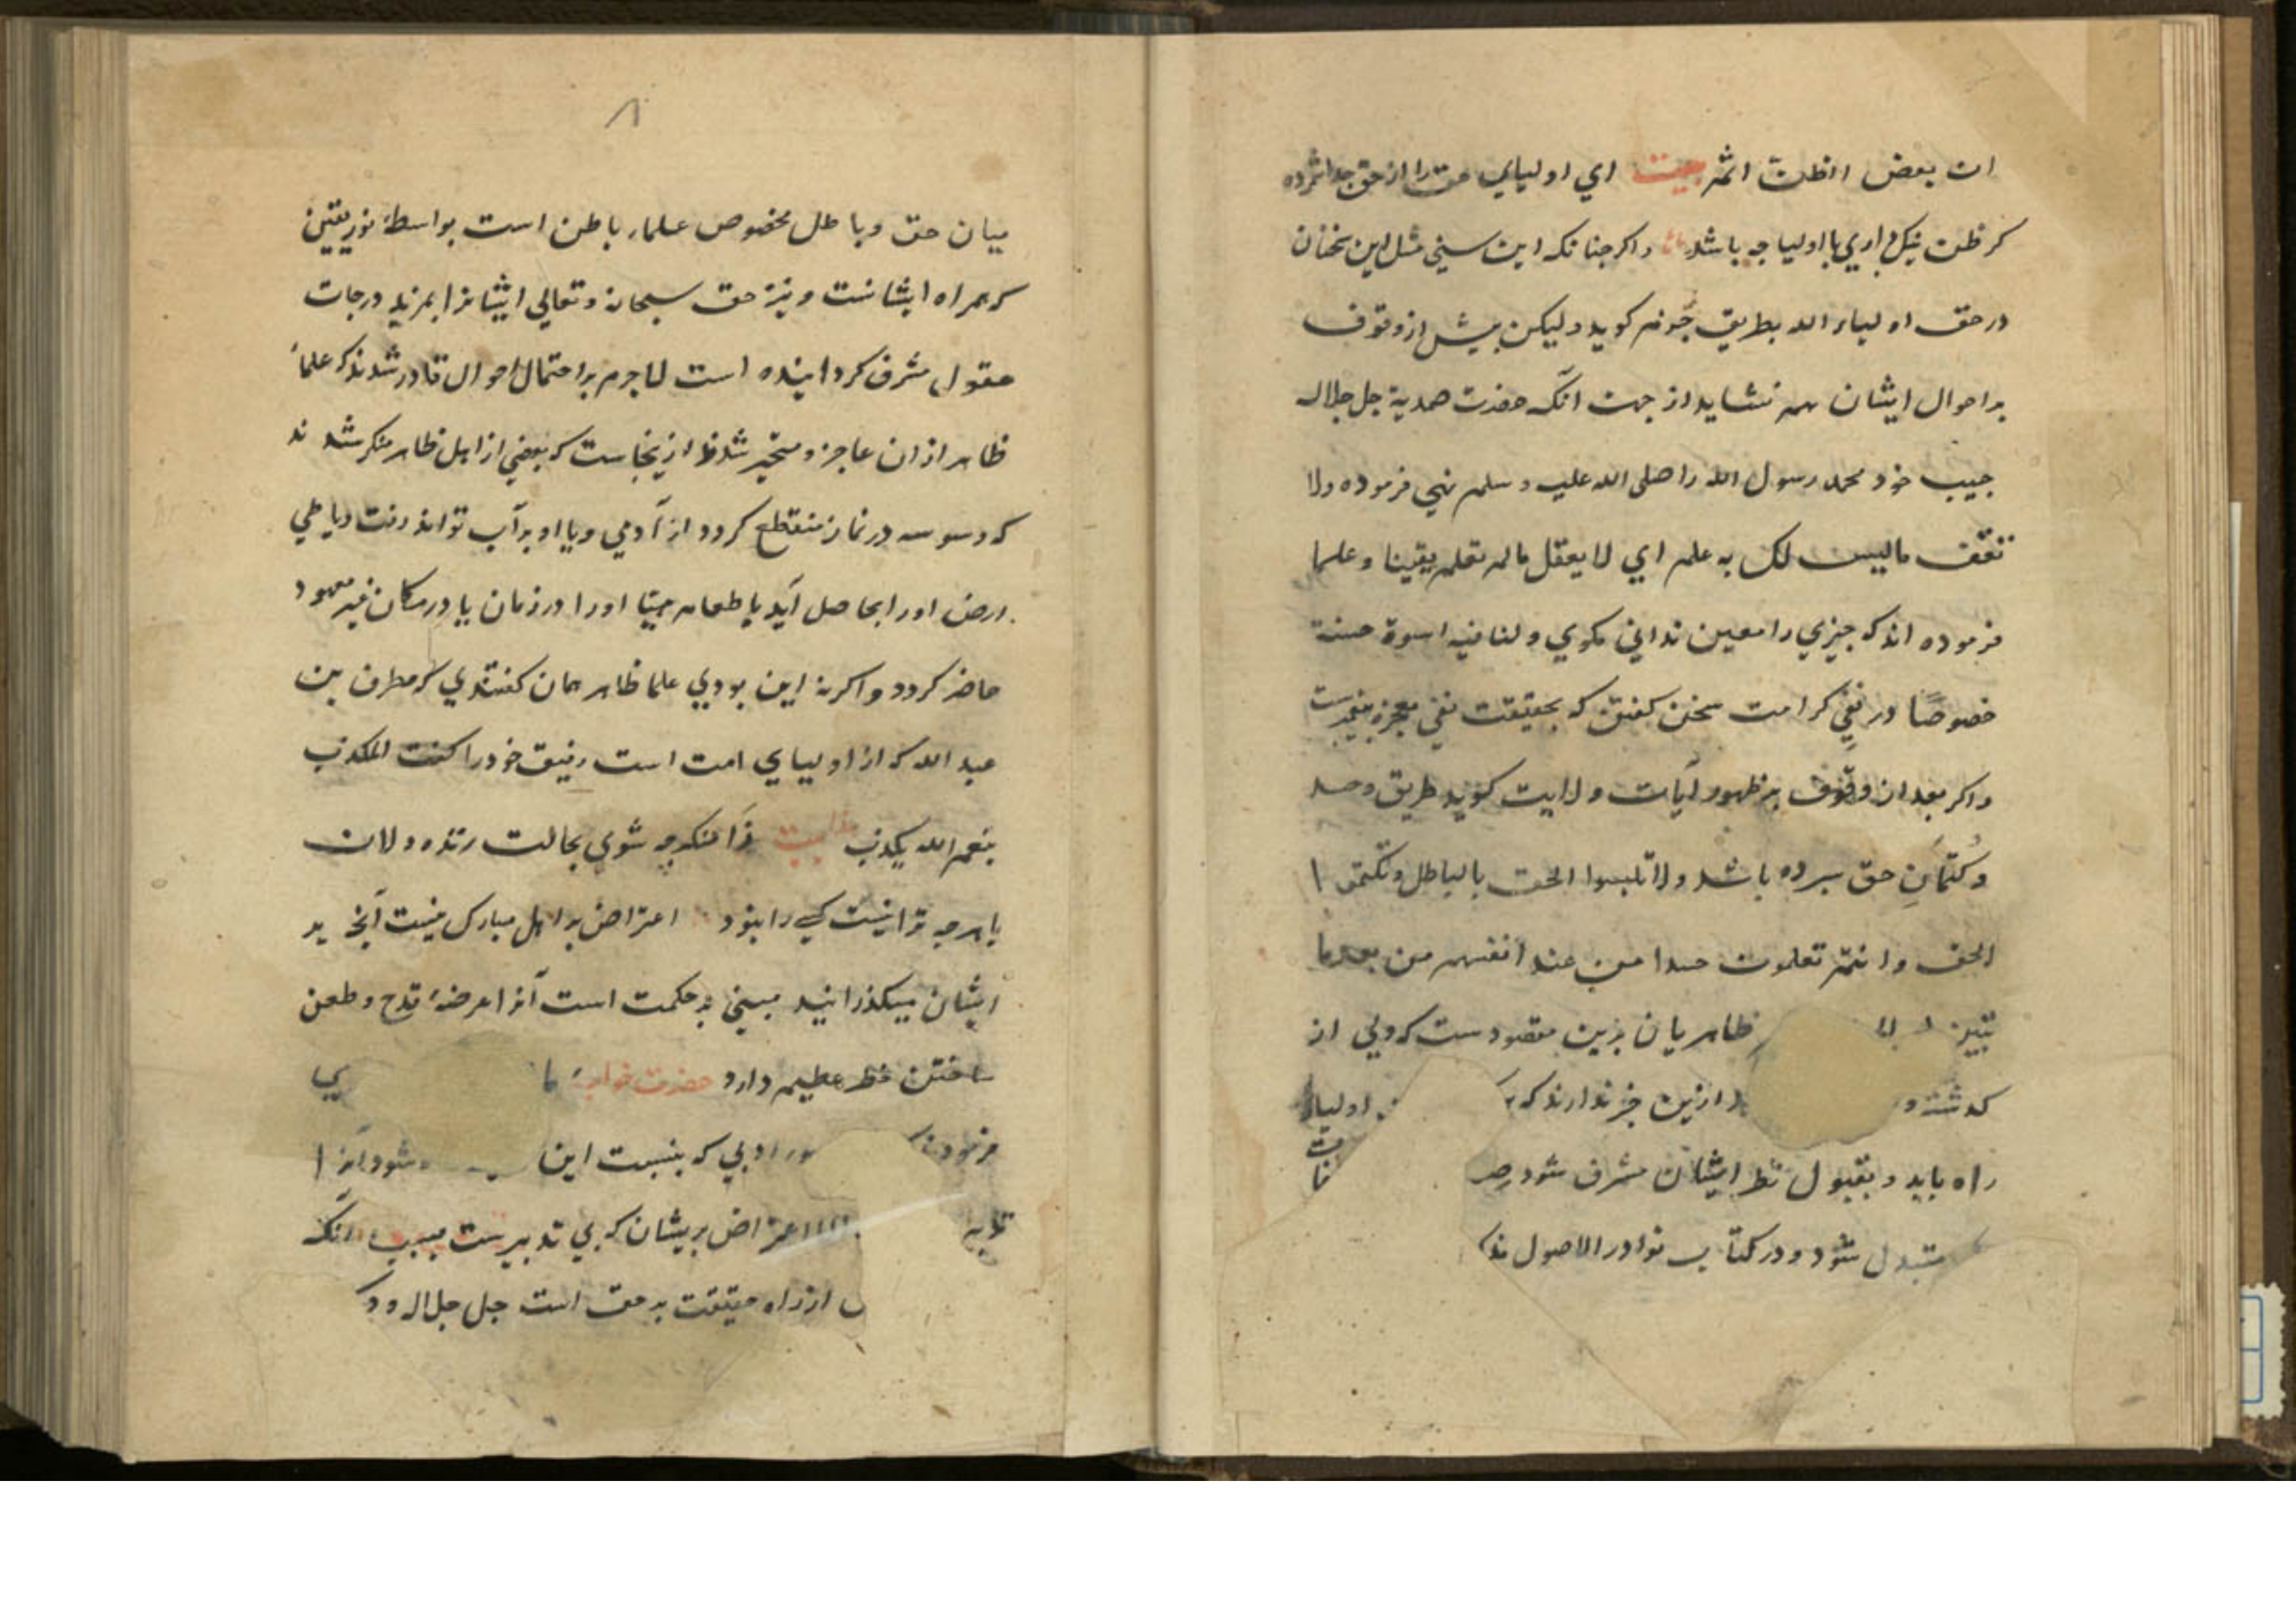 ان بعض الظن اثم بیت ای اولیای حق را از حق جدا شمرده
کر ظن نیک داری با اولیا چه باشد واکر جنانکه این سنی مثل این سخنان
در حق اولیاء الله بطریق کوید ولیکن بیش از وقوف
بر احوال ایشان هم نشاید از جهت آنکه حضرت صمدیة جل جلاله
حبیب خود محمد رسول الله را صلی الله علیه وسلم نهی فرموده ولا
تقف مالیس لک به علم ای لا یعقل مالم تعلم یقینا وعلما
فرموده اند که جیزی را معین ندانی مکوی ولنا فیه اسوة حسنة
خصوصًا در نفی کرامت سخن کفتن که بحقیقت نفی معجزه بیغمبرست
واکر بعد از وقوف بر ظهور آیات ولایت کوید طریق وحسد
وکتمان حق سبرده باشد ولا تلبسوا الحق بالباطل وتکتموا
الحق وانتم تعلمون حسدا من عند انفسهم من بعد ما
تبین ظاهریان بدین مقصودست که ولی از
کذشته و ازین خبر ندارند که اولیاء
راه یابد وبقبول نظر ایشان مشرف شود
متبدل شود ودر کتاب نوادر الاصول
۸
میان حق وباطل مخصوص علماء باطن است بواسطهٔ نور یقین
که همراه ایشانست ونیز حق سبحانه وتعالی ایشانرا بمزید درجات
مشرف کردانیده است لاجرم بر احتمال احوال قادر شدند که علماء
ظاهر ازان عاجز ومتحیر شدند ازینجاست که بعضی از اهل ظاهر منکر شدند
که وسوسه در نماز منقطع کردد از آدمی ویا او بر آب تواند رفت ویا طی
ارض اورا بحاصل آید یا طعام مهیا اورا در زمان یا در مکان غیر معهود
حاضر کردد واکر نه این بودی علما ظاهر همان کفتندی که مطرف بن
عبد الله که از اولیای امت است رفیق خودرا کفت المکذب
بنعم الله یکذب بیت منکر چه شوی بحالت زنده دلان
نه هرچه ترا نیست کسی را نبود اعتراض بر اهل مبارک نیست آنچه بر
ایشان میکذرانید مبنی بر حکمت است آنرا عرضهٔ قدح وطعن
ساختن خطر عظیم دارد حضرت خواجه ما
فرمودند ادبی که بنسبت این شود آنرا
توبه اعتراض بریشان که بی تدبیرست بسبب آنکه
از راه حقیقت بر حق است جل جلاله